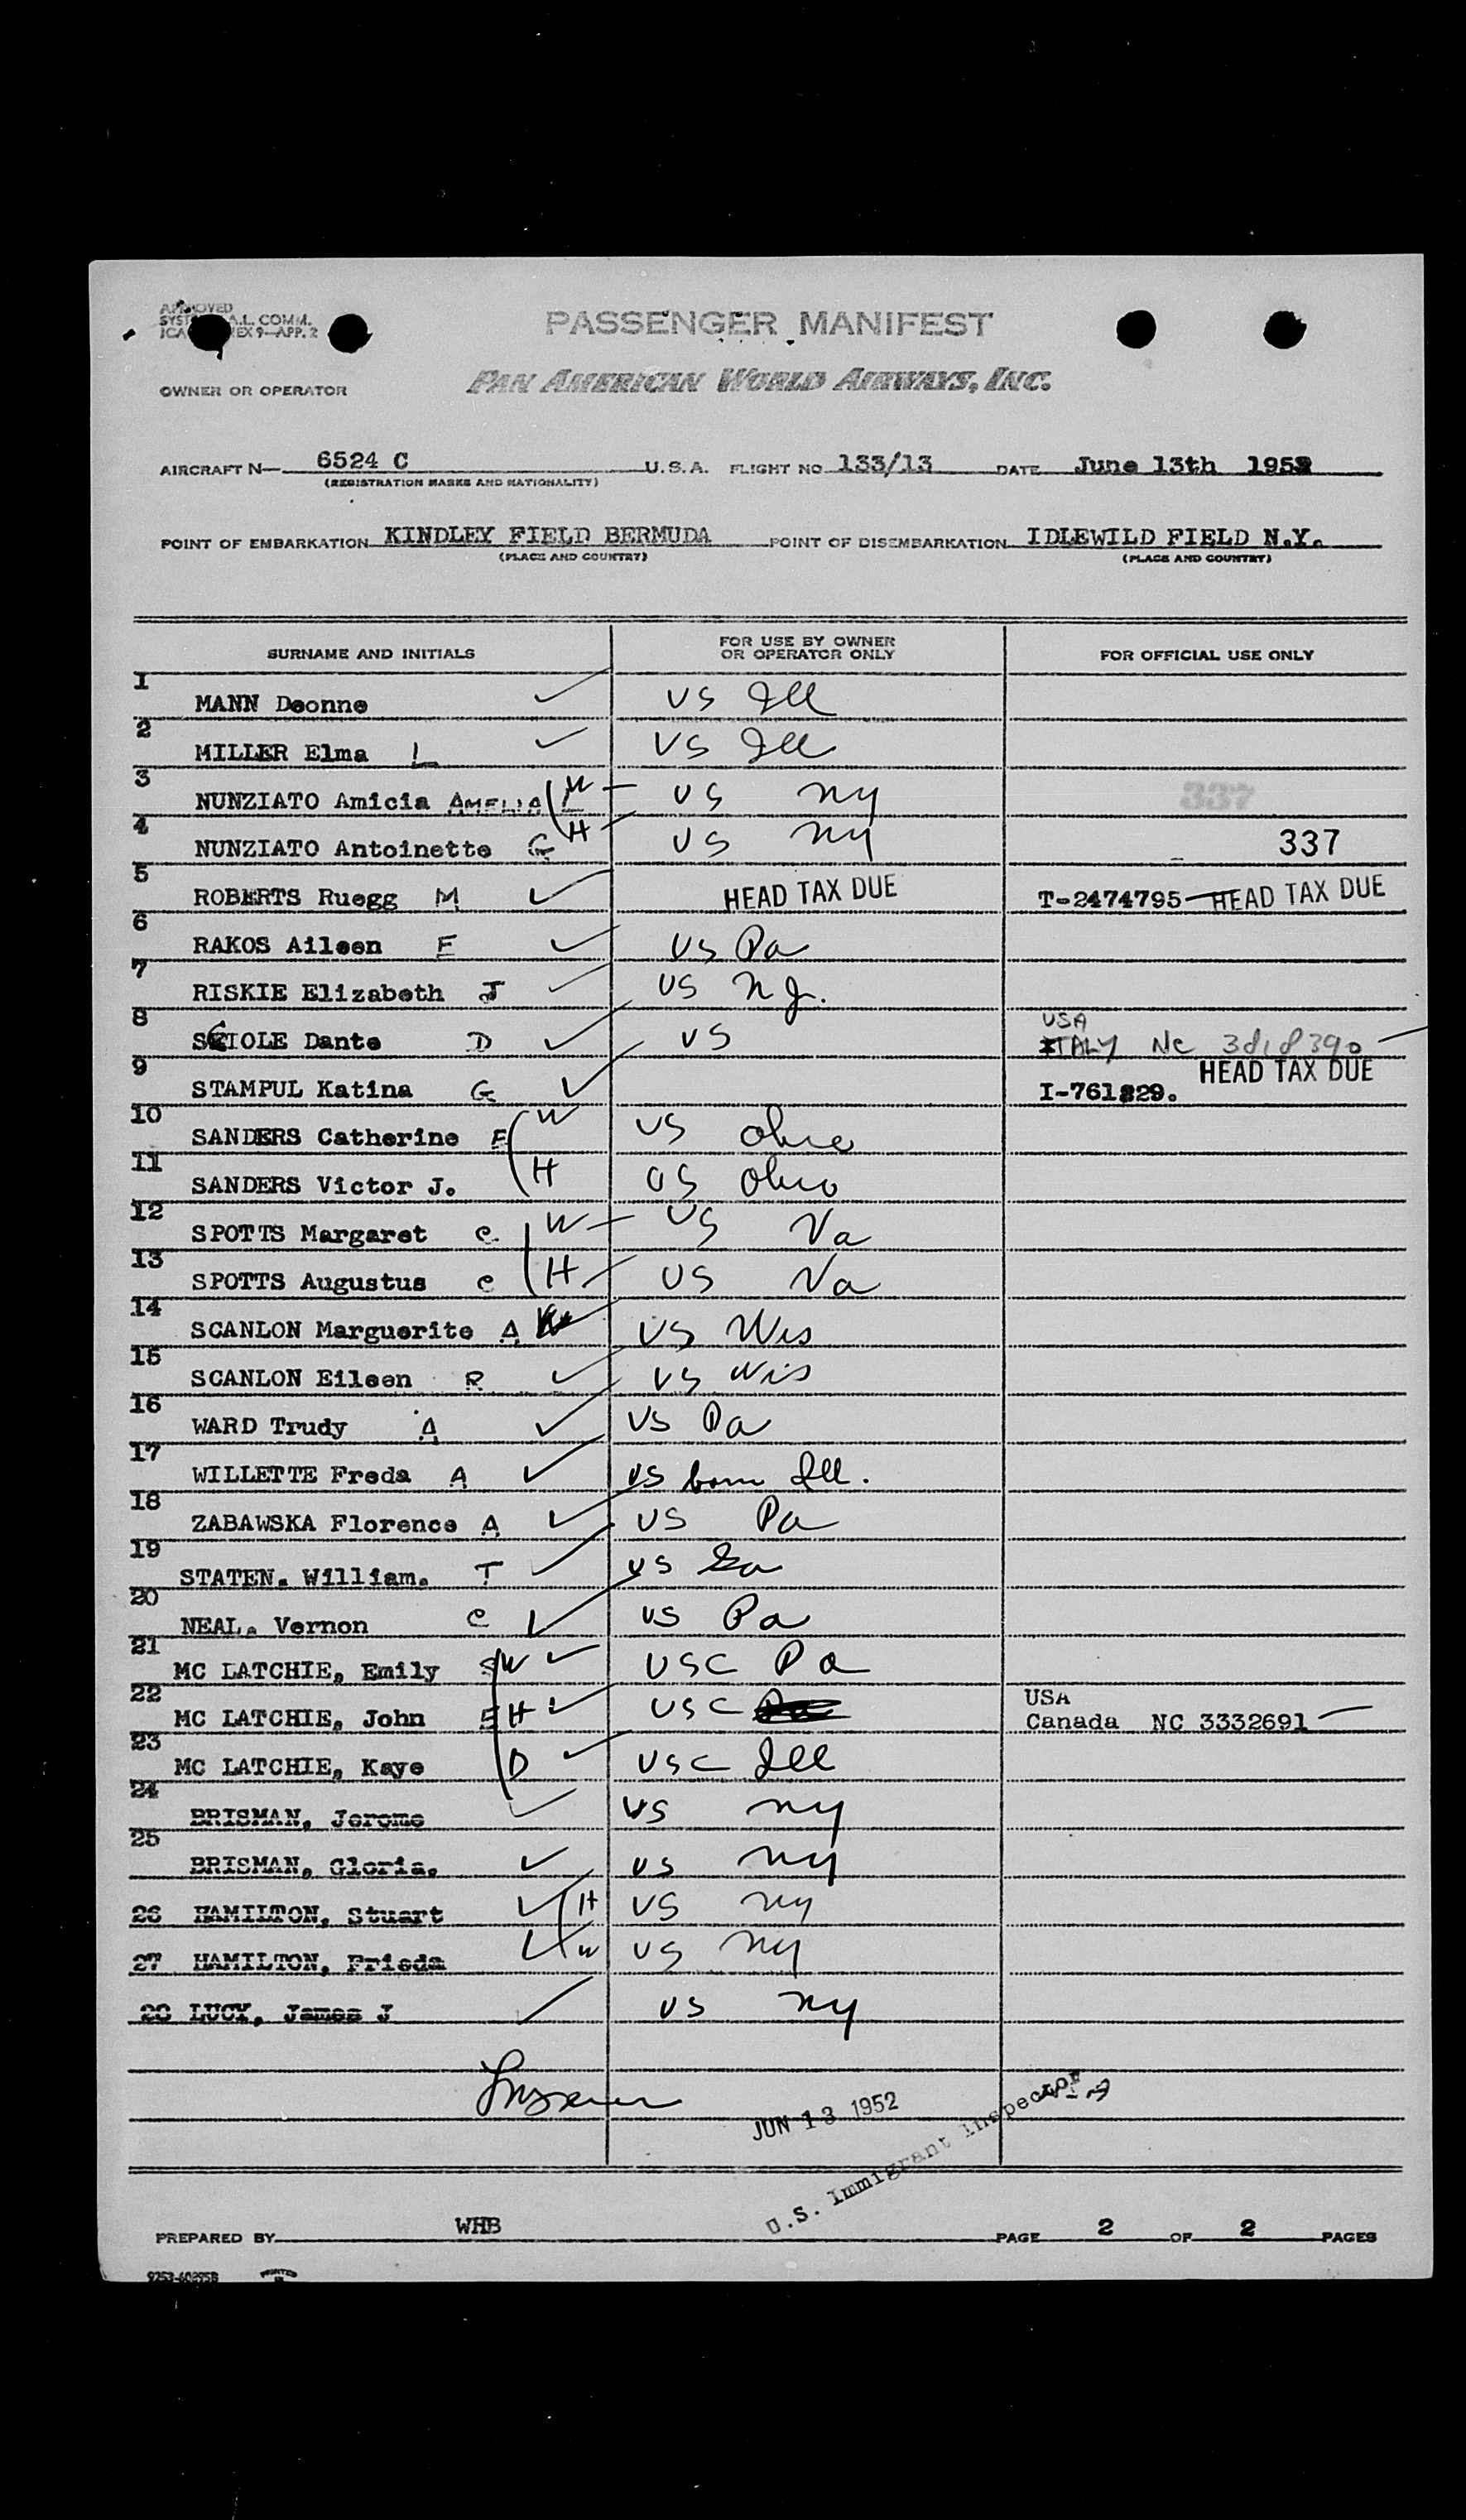 APPROVED
SYST A.L. COMM.
ICA EX 9—APP. 2
PASSENGER MANIFEST
OWNER OR OPERATOR PAN AMERICAN WORLD AIRWAYS, INC.
AIRCRAFT N— 6524 C U.S.A. FLIGHT NO 133/13 DATE June 13th 1952
(REGISTRATION MARKS AND NATIONALITY)
POINT OF EMBARKATION KINDLEY FIELD BERMUDA POINT OF DISEMBARKATION IDLEWILD FIELD N.Y.
(PLACE AND COUNTRY) (PLACE AND COUNTRY)
SURNAME AND INITIALS FOR USE BY OWNER OR OPERATOR ONLY FOR OFFICIAL USE ONLY
1 MANN Deonne US Ill
2 MILLER Elma L US Ill
3 NUNZIATO Amicia AMELIA W US NY 337
4 NUNZIATO Antoinette G H US NY 337
5 ROBERTS Ruegg M HEAD TAX DUE T-2474795 HEAD TAX DUE
6 RAKOS Aileen E US Pa
7 RISKIE Elizabeth J US N J.
8 SCIOLE Dante D US USA ITALY NC
9 STAMPUL Katina G I-761829. HEAD TAX DUE
10 SANDERS Catherine E W US Ohio
11 SANDERS Victor J. H US Ohio
12 SPOTTS Margaret C W US Va
13 SPOTTS Augustus C H US Va
14 SCANLON Marguerite A US Wis
15 SCANLON Eileen R US Wis
16 WARD Trudy A US Pa
17 WILLETTE Freda A US born Ill.
18 ZABAWSKA Florence A US Pa
19 STATEN. William. T US Ga
20 NEAL. Vernon C US Pa
21 MC LATCHIE, Emily S W USC Pa
22 MC LATCHIE, John E H USC USA
Canada NC 3332691
23 MC LATCHIE, Kaye D USC Ill
24 BRISMAN, Jerome US NY
25 BRISMAN, Gloria. US NY
26 HAMILTON, Stuart H US NY
27 HAMILTON, Frieda W US NY
28 LUCY, James J US NY
JUN 13 1952
U.S. Immigrant Inspector
PREPARED BY WHB PAGE 2 OF 2 PAGES
9253-60295B PRINTED